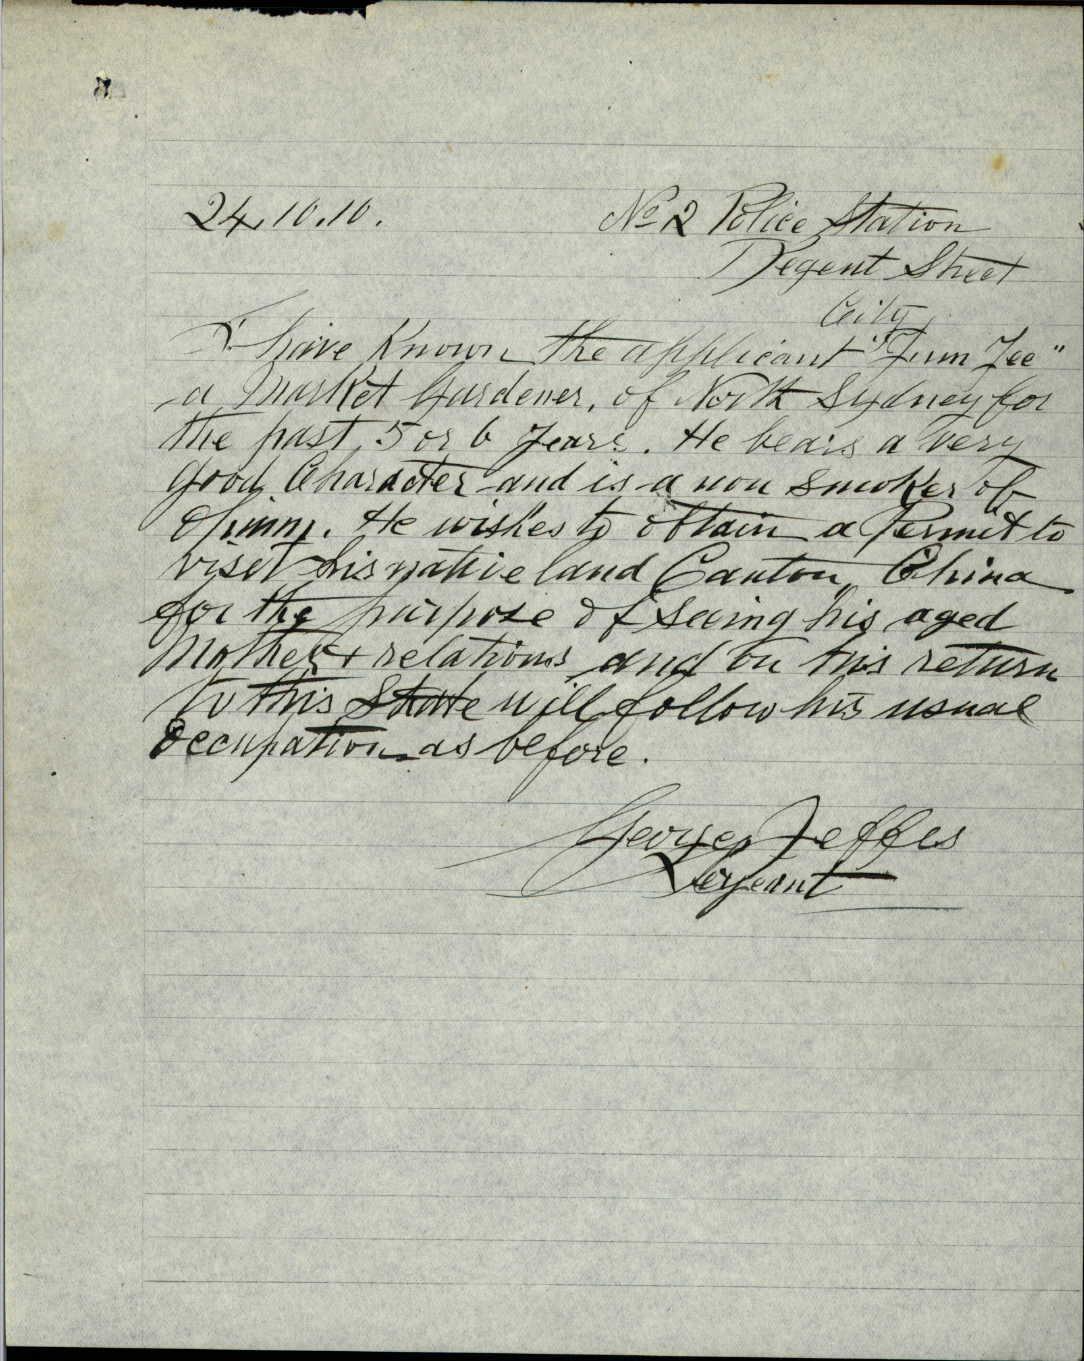 24.10.10.
No 2 Police Station
Regent Street
City
I have Known the applicant "Jum Yee"
a Market Gardener, of North Sydney for
the past 5 or 6 Years. He bears a very
good Character and is a non smoker of
Opium. He wishes to obtain a Permit to
viset his native land Canton, China
for the purpose of seeing his aged
Mother & relations and on his return
to this State will follow his usual
Occupation as before.
George Jeffes
Serjeant